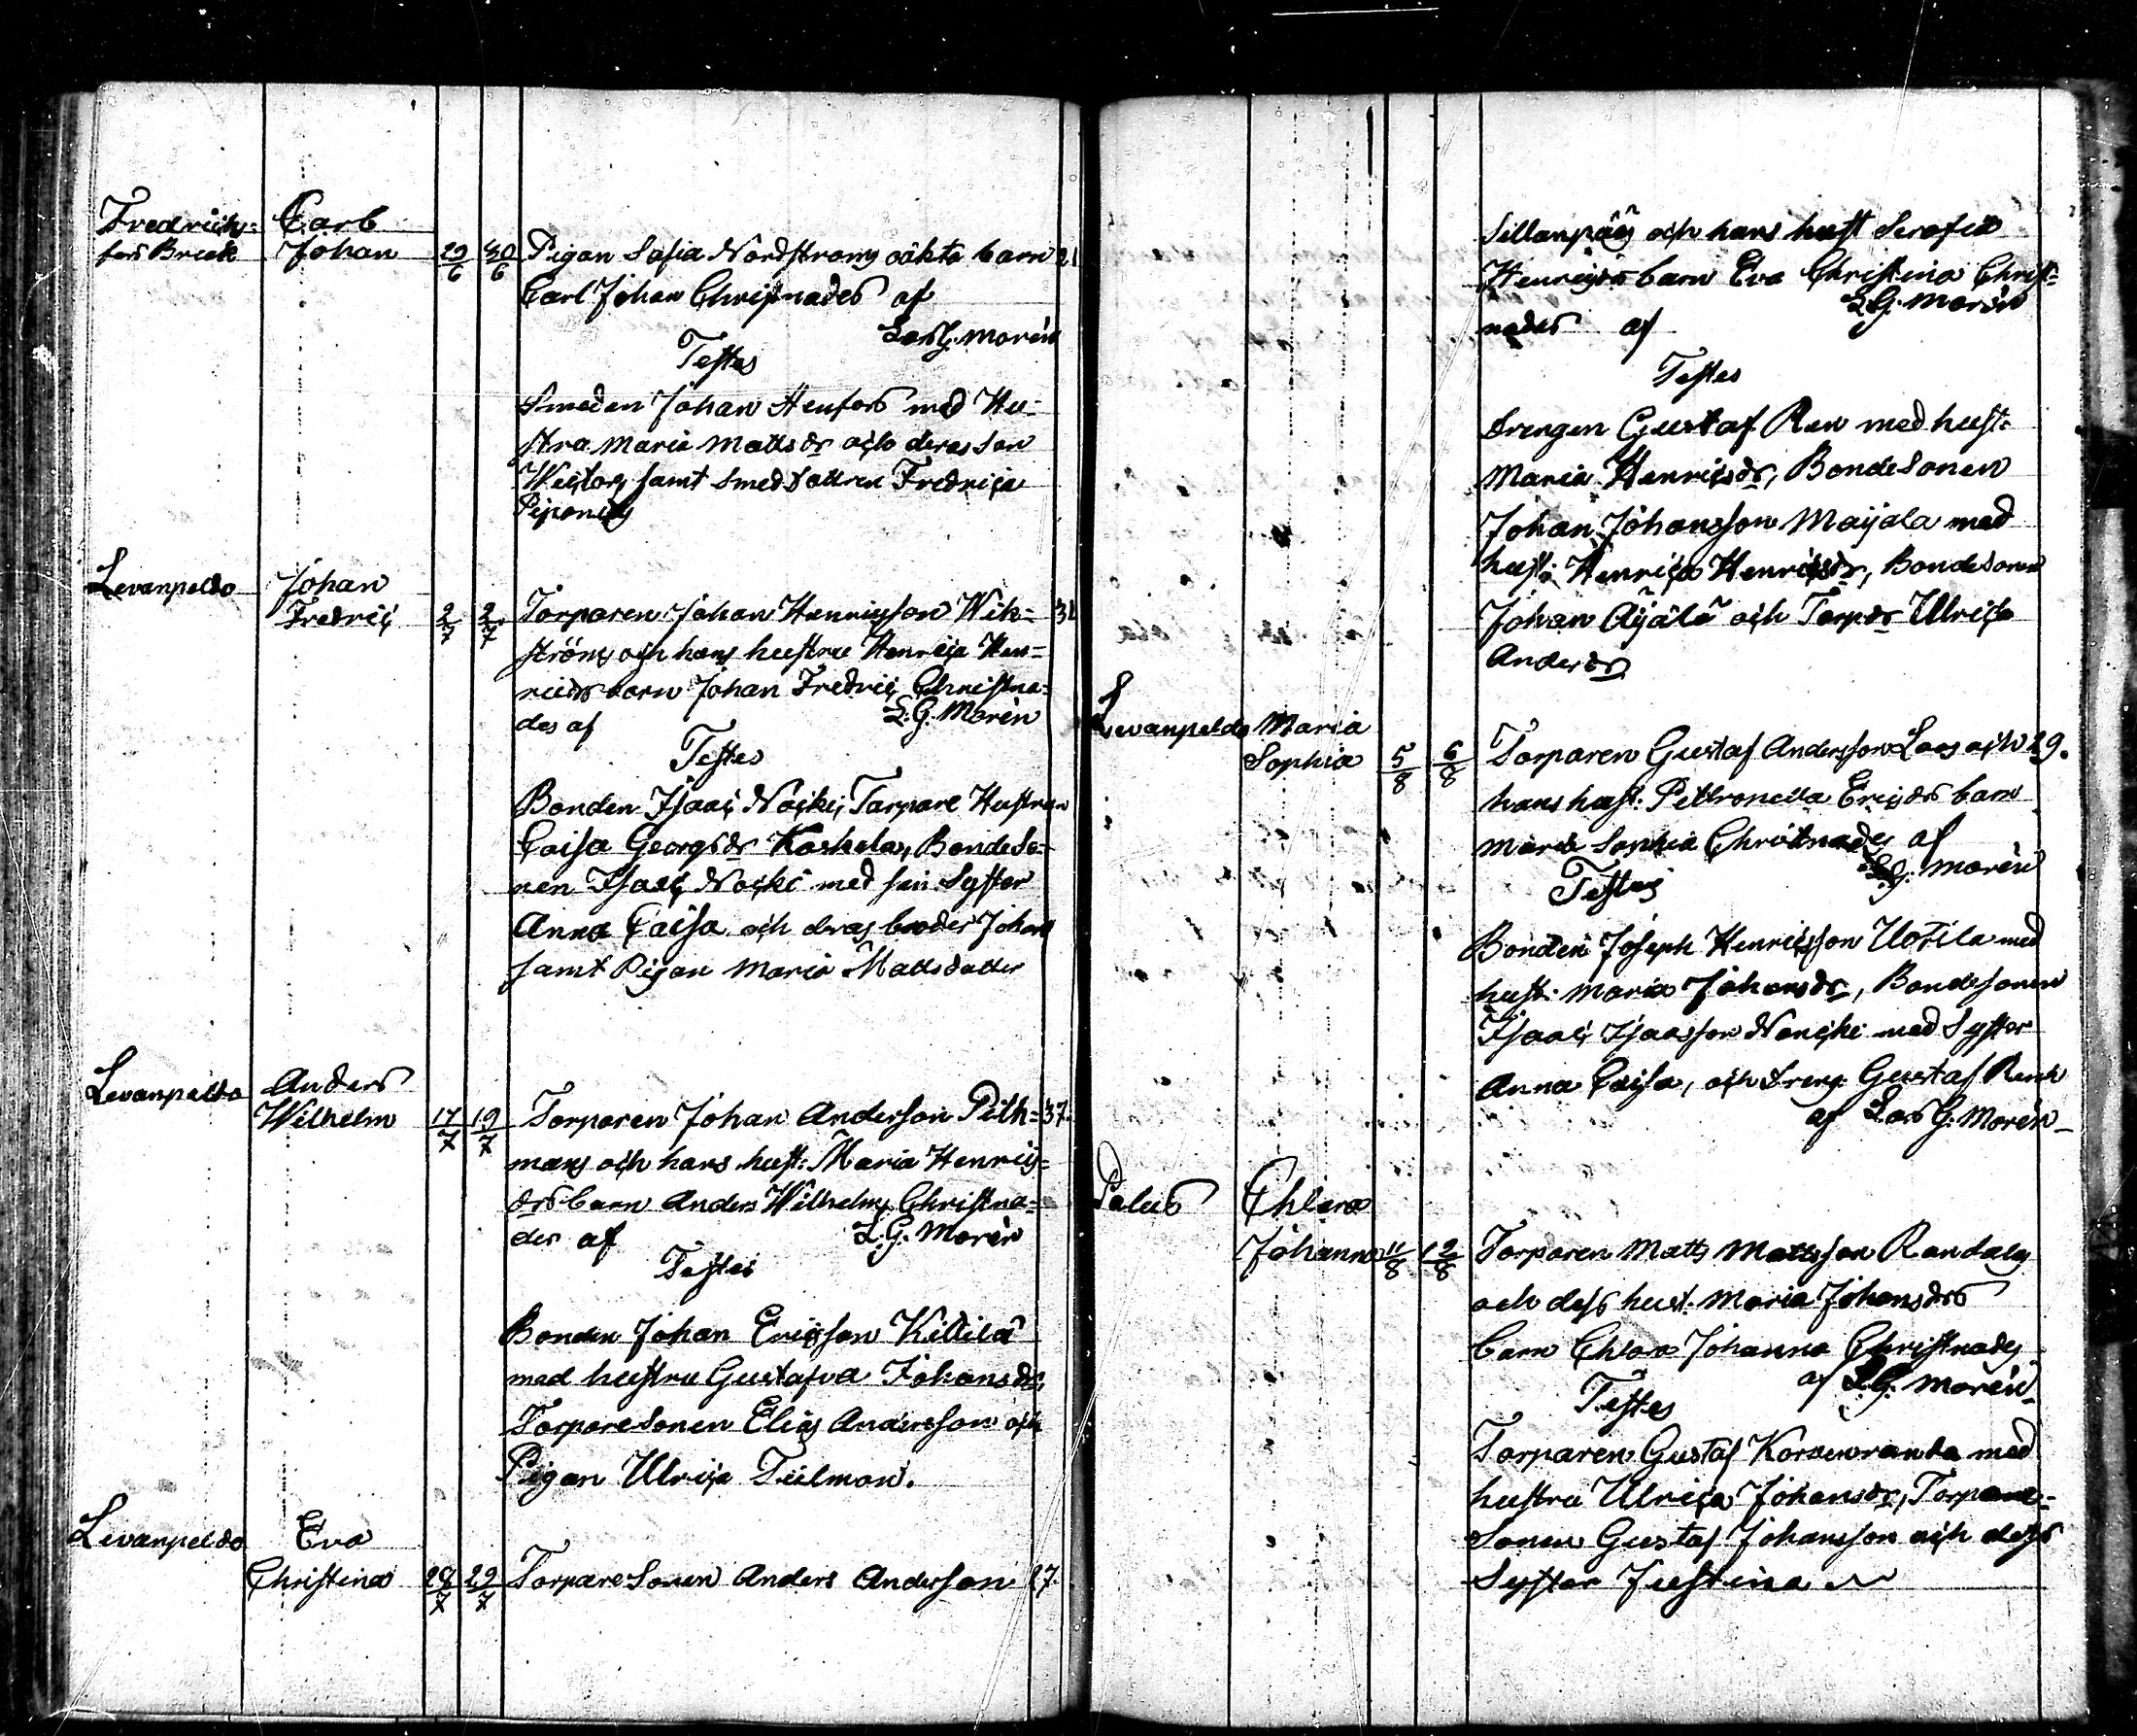 Fredrichs=
fors Bruk
Carl
Johan
29/6 30/6
Pigan Sofia Nordstroms oäkta barn 21
Carl Johan Christnades af
Lars G. Morén
Testes
Smeden Johan Henfors med Hu=
stra Maria Matts dr och deras son
Wictor, samt Smedsdottren Fredrica
Piponius
Levanpeldo
Johan
Fredric
2/7 2/7
Torparen Johan Henricsson Wik= 31
ströms och hans hustru Henrica Hen=
ricsdrs barn Johan Fredric Christna=
des af L. G. Morén
Testes
Bonden Isaac Nocki, Torpare Hustrun
Caisa Georgsdr Koskelas, Bondeso=
nen Isaac Nocki med sin Syster
Anna Caisa och deras broder Johan
samt Pigan Maria Mattsdotter
Levanpeldo
Anders
Wilhelm
17/7 19/7
Torparen Johan Anderson Pith= 37.
mans och hans hust: Maria Henrics=
drs barn Anders Wilhelm Christna=
des af L. G. Morén
Testes
Bonden Johan Ericsson Kittilä
med hustru Gustafva Johansdr,
Torparesonen Elias Andersson och
Pigan Ulrica Tiilmon.
Levanpeldo
Eva
Christina
28/7 29/7
TorpareSonen Anders Anderson 27.
Sillanpääs och hans hust Serafia
Henricsdrs barn Eva Christina Christ=
nades af L. G. Morén
Testes
Drengen Gustaf Ren med hust:
Maria Henricsdr, Bondesonen
Johan Johansson Maijala med
hust: Henrica Henricsdr, Bondesonen
Johan Äijälä och Torpdr Ulrica
Andersdr
Levanpeldo Maria
Sophia
5/8 6/8
Torparen Gustaf Andersson Laas och 29.
hans hust: Pettronella Ericsdrs barn
Maria Sophia Christnades af
Testes L. G. Morén
Bonden Joseph Henricsson Uotila med
hust: Maria Johansdr, Bondesonen
Isaac Isaacsson Nocki med Syster
Anna Caisa, och dreng Gustaf Renk
af Lars G. Morén
Palus
Chlara
Johanna
11/8 12/8
Torparen Matts Mattsson Randalas
och dess hust: Maria Johansdrs
barn Chlara Johanna Christnades
Testes af L. G. Morén
Torparen Gustaf Korvenranda med
hustru Ulrica Johansdr, Torpare=
Sonen Gustaf Johansson och dess
Syster Justina